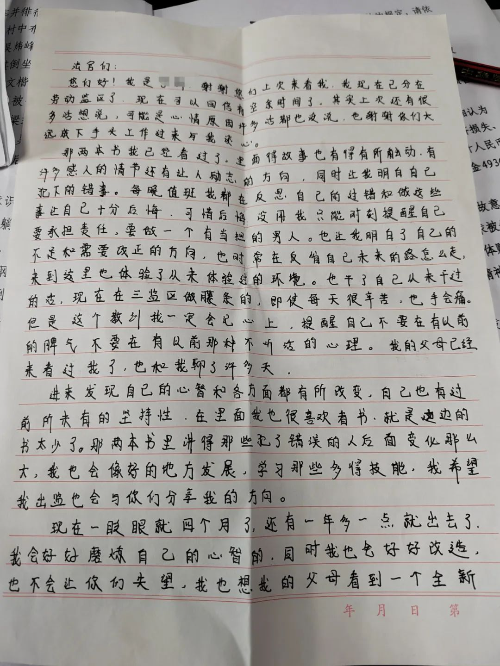 法官们：
您们好！我是 谢谢您们上次来看我，我现在已分在
劳动监区了，现在可以回信有空余时间了，其实上次还有很
多话想说，可能是心情原因许多话都也没说，也谢谢你们大
远放下手头工作过来与我谈心。
那两本书我已经看过了，里面得故事也有得有所触动，有
许多感人的情节还有让人励志的方向，同时让我明白自己
犯下的错事。每晚值班我都在反思，自己的过错和做这些
事让自己十分后悔，可惜后悔没用我只能时刻提醒自己
要承担责任，要做一个有当担的男人。也让我明白了自己的
不足和需要改正的方向，也时常在反省自己未来的路怎么走，
来到这里也体验了从来体验过的环境。也干了自己从来干过
的活，现在在三监区做服装的，即使每天很辛苦，也手会痛。
但是这个教训我一定会记心上，提醒自己不要在有以前
的脾气不要在有以前那种不听话的心理。我的父母已经
来看过我了，也和我聊了许多天，
进来发现自己的心智和各方面都有所改变，自己也有过
前所未有的坚持性，在里面我也很喜欢看书，就是迪边的
书太少了。那两本书里讲得那些犯了错误的人后面变化那么
大，我也会像好的地方发展，学习那些多得技能，我希望
我出监也会与你们分享我的方向。
现在一眨眼就四个月了，还有一年多一点就出去了，
我会好好磨炼自己的心智的，同时我也会好好改造，
也不会让你们失望，我也想我的父母看到一个全新
年 月 日 第